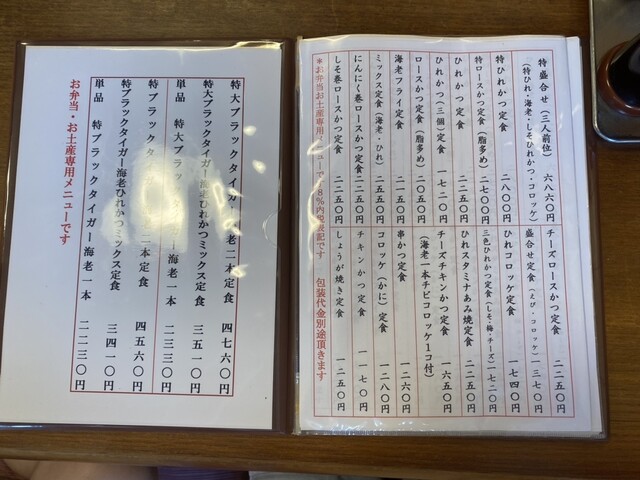 特盛合せ（三人前位） 六八六〇円
（特ひれ・海老・しそひれかつ・コロッケ）
特ひれかつ定食 二八〇〇円
特ロースかつ定食（脂多め） 二七〇〇円
ひれかつ定食 二二五〇円
ひれかつ（三個）定食 一七二〇円
ロースかつ定食（脂多め） 二〇五〇円
海老フライ定食 二一五〇円
ミックス定食（海老・ひれ） 二五五〇円
にんにく巻ロースかつ定食 二二五〇円
しそ巻ロースかつ定食 二二五〇円
チーズロースかつ定食 二二五〇円
盛合せ定食（えび・コロッケ） 一三七〇円
ひれコロッケ定食 一七四〇円
三色ひれかつ定食（しそ・梅・チーズ） 一七二〇円
ひれスタミナあみ焼定食 二二五〇円
チーズチキンかつ定食 一六五〇円
（海老一本チビコロッケ1コ付）
串かつ定食 一二六〇円
コロッケ（かに）定食 一二八〇円
チキンかつ定食 一一七〇円
しょうが焼き定食 一二五〇円
＊お弁当お土産専用メニューで8％内税表記です 包装代金別途頂きます
特大ブラックタイガー海老二本定食 四七六〇円
特大ブラックタイガー海老ひれかつミックス定食 三五一〇円
単品 特大ブラックタイガー海老一本 二三三〇円
特ブラックタ 二本定食 四五六〇円
特ブラックタイガー海老ひれかつミックス定食 三四一〇円
単品 特ブラックタイガー海老一本 二二三〇円
お弁当・お土産専用メニューです